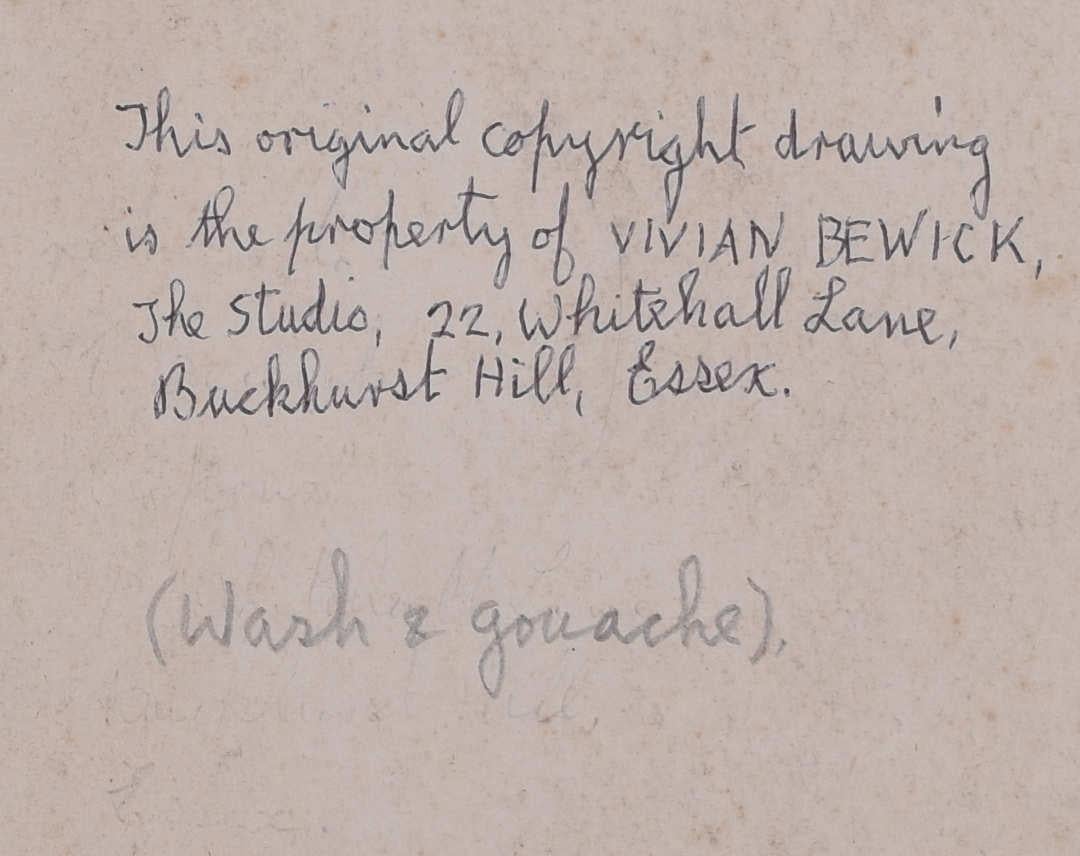 This original copyright drawing
is the property of VIVIAN BEWICK,
The Studio, 22, Whitehall Lane,
Buckhurst Hill, Essex.
(Wash & gouache).